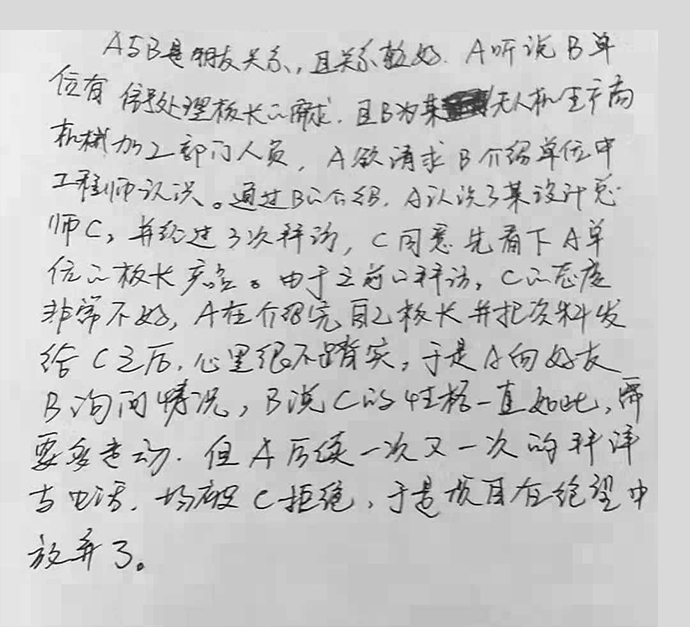 A与B是朋友关系，且关系较好. A听说B单
位有信号处理板卡的需求. 且B为某无人机生产商
机械加工部门人员，A欲请求B介绍单位中
工程师认识。通过B的介绍，A认识了某设计总
师C，并经过3次拜访，C同意先看下A单
位的板卡产品。由于之前的拜访，C的态度
非常不好，A在介绍完自己板卡并把资料发
给C之后，心里很不踏实，于是A向好友
B询问情况，B说C的性格一直如此，需
要多走动. 但A后续一次又一次的拜访
与电话，均被C拒绝，于是项目在绝望中
放弃了。